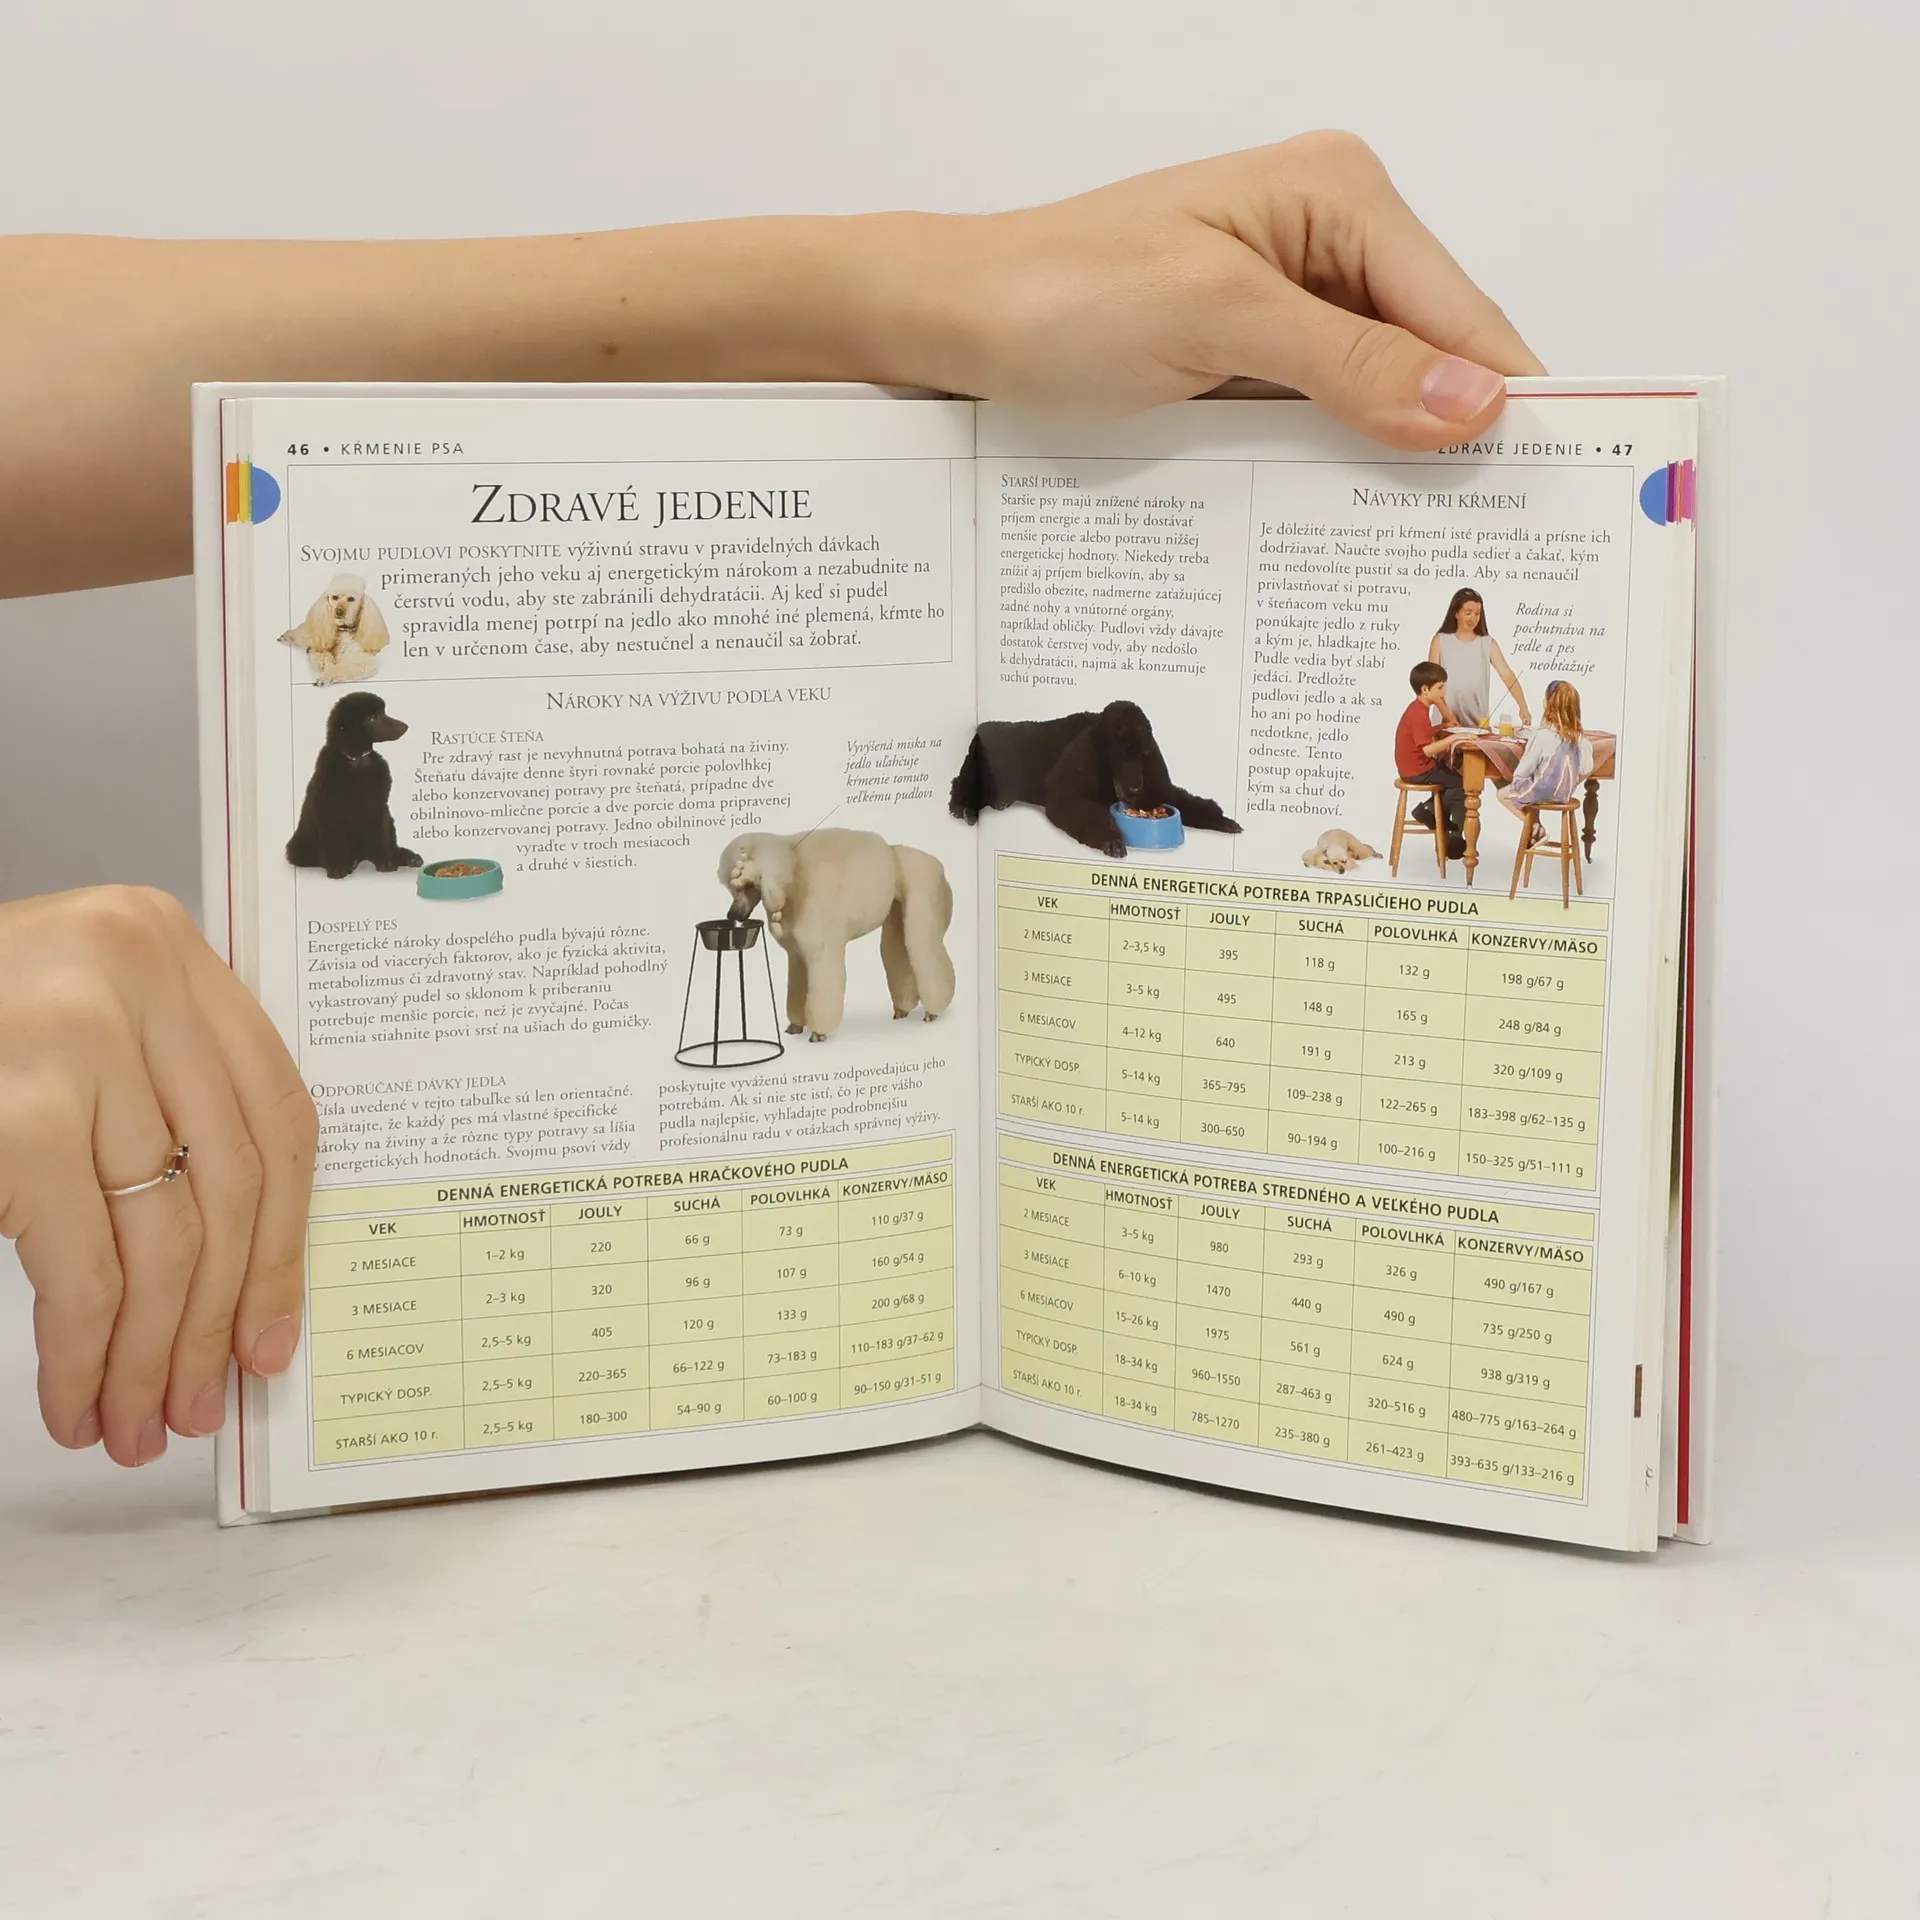 46 • KŔMENIE PSA
ZDRAVÉ JEDENIE
SVOJMU PUDLOVI POSKYTNITE výživnú stravu v pravidelných dávkach
primeraných jeho veku aj energetickým nárokom a nezabudnite na
čerstvú vodu, aby ste zabránili dehydratácii. Aj keď si pudel
spravidla menej potrpí na jedlo ako mnohé iné plemená, kŕmte ho
len v určenom čase, aby nestučnel a nenaučil sa žobrať.
NÁROKY NA VÝŽIVU PODĽA VEKU
RASTÚCE ŠTEŇA
Pre zdravý rast je nevyhnutná potrava bohatá na živiny.
Šteňaťu dávajte denne štyri rovnaké porcie polovlhkej
alebo konzervovanej potravy pre šteňatá, prípadne dve
obilninovo-mliečne porcie a dve porcie doma pripravenej
alebo konzervovanej potravy. Jedno obilninové jedlo
vyraďte v troch mesiacoch
a druhé v šiestich.
Vyvýšená miska na
jedlo uľahčuje
kŕmenie tomuto
veľkému pudlovi
DOSPELÝ PES
Energetické nároky dospelého pudla bývajú rôzne.
Závisia od viacerých faktorov, ako je fyzická aktivita,
metabolizmus či zdravotný stav. Napríklad pohodlný
vykastrovaný pudel so sklonom k priberaniu
potrebuje menšie porcie, než je zvyčajné. Počas
kŕmenia stiahnite psovi srsť na ušiach do gumičky.
ODPORÚČANÉ DÁVKY JEDLA
Čísla uvedené v tejto tabuľke sú len orientačné.
amätajte, že každý pes má vlastné špecifické
nároky na živiny a že rôzne typy potravy sa líšia
v energetických hodnotách. Svojmu psovi vždy
poskytujte vyváženú stravu zodpovedajúcu jeho
potrebám. Ak si nie ste istí, čo je pre vášho
pudla najlepšie, vyhľadajte podrobnejšiu
profesionálnu radu v otázkach správnej výživy.
DENNÁ ENERGETICKÁ POTREBA HRAČKOVÉHO PUDLA
VEK HMOTNOSŤ JOULY SUCHÁ POLOVLHKÁ KONZERVY/MÄSO
2 MESIACE 1–2 kg 220 66 g 73 g 110 g/37 g
3 MESIACE 2–3 kg 320 96 g 107 g 160 g/54 g
6 MESIACOV 2,5–5 kg 405 120 g 133 g 200 g/68 g
TYPICKÝ DOSP. 2,5–5 kg 220–365 66–122 g 73–183 g 110–183 g/37–62 g
STARŠÍ AKO 10 r. 2,5–5 kg 180–300 54–90 g 60–100 g 90–150 g/31–51 g
ZDRAVÉ JEDENIE • 47
STARŠÍ PUDEL
Staršie psy majú znížené nároky na
príjem energie a mali by dostávať
menšie porcie alebo potravu nižšej
energetickej hodnoty. Niekedy treba
znížiť aj príjem bielkovín, aby sa
predišlo obezite, nadmerne zaťažujúcej
zadné nohy a vnútorné orgány,
napríklad obličky. Pudlovi vždy dávajte
dostatok čerstvej vody, aby nedošlo
k dehydratácii, najmä ak konzumuje
suchú potravu.
NÁVYKY PRI KŔMENÍ
Je dôležité zaviesť pri kŕmení isté pravidlá a prísne ich
dodržiavať. Naučte svojho pudla sedieť a čakať, kým
mu nedovolíte pustiť sa do jedla. Aby sa nenaučil
privlastňovať si potravu,
v šteňacom veku mu
ponúkajte jedlo z ruky
a kým je, hladkajte ho.
Pudle vedia byť slabí
jedáci. Predložte
pudlovi jedlo a ak sa
ho ani po hodine
nedotkne, jedlo
odneste. Tento
postup opakujte,
kým sa chuť do
jedla neobnoví.
Rodina si
pochutnáva na
jedle a pes
neobťažuje
DENNÁ ENERGETICKÁ POTREBA TRPASLIČIEHO PUDLA
VEK HMOTNOSŤ JOULY SUCHÁ POLOVLHKÁ KONZERVY/MÄSO
2 MESIACE 2–3,5 kg 395 118 g 132 g 198 g/67 g
3 MESIACE 3–5 kg 495 148 g 165 g 248 g/84 g
6 MESIACOV 4–12 kg 640 191 g 213 g 320 g/109 g
TYPICKÝ DOSP. 5–14 kg 365–795 109–238 g 122–265 g 183–398 g/62–135 g
STARŠÍ AKO 10 r. 5–14 kg 300–650 90–194 g 100–216 g 150–325 g/51–111 g
DENNÁ ENERGETICKÁ POTREBA STREDNÉHO A VEĽKÉHO PUDLA
VEK HMOTNOSŤ JOULY SUCHÁ POLOVLHKÁ KONZERVY/MÄSO
2 MESIACE 3–5 kg 980 293 g 326 g 490 g/167 g
3 MESIACE 6–10 kg 1470 440 g 490 g 735 g/250 g
6 MESIACOV 15–26 kg 1975 561 g 624 g 938 g/319 g
TYPICKÝ DOSP. 18–34 kg 960–1550 287–463 g 320–516 g 480–775 g/163–264 g
STARŠÍ AKO 10 r. 18–34 kg 785–1270 235–380 g 261–423 g 393–635 g/133–216 g